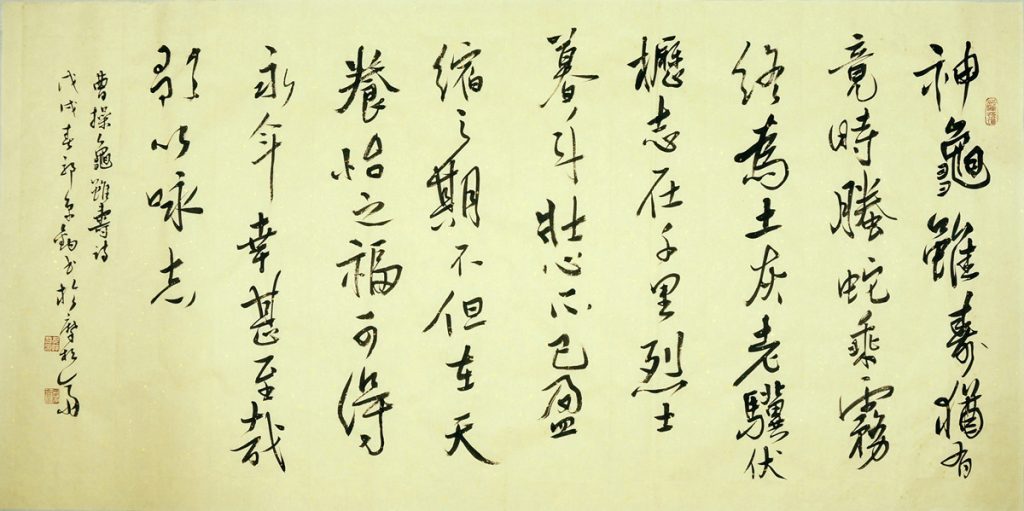 神龜雖壽猶有
竟時騰蛇乘霧
終為土灰老驥伏
櫪志在千里烈士
暮年壯心不已盈
缩之期不但在天
養怡之福可得
永年幸甚至哉
歌以咏志
曹操龜雖壽詩
戊戌春郭